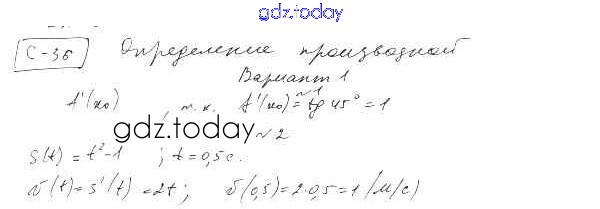 gdz.today
С-36 Определение производной
Вариант 1
№1
f'(x₀) , т.к. f'(x₀) = tg 45° = 1
gdz.today
№2
S(t) = t²-1 ; t = 0,5 c.
v(t) = s'(t) = 2t ; v(0,5) = 2·0,5 = 1 (м/с)